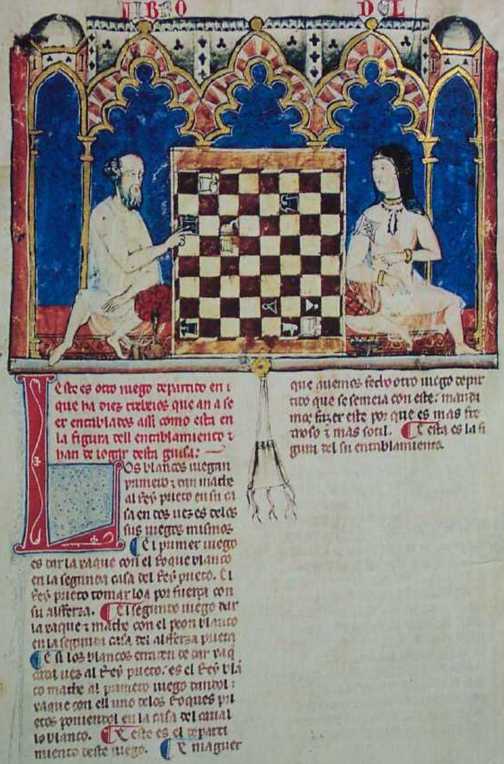 LIBRO
DEL
Este es otro iuego departido en i
que ha diez trebeios que an a se
er entablados assi como esta en
la figura dell entablamiento τ
han de iogar desta guisa:
Los blancos iuegan
primero τ dan mathe
al Rey prieto en su ca
sa en dos uezes delos
sus iuegos mismos
El primer iuego
es dar la xaque con el Roque blanco
en la segunda casa del Rey prieto. El
Rey prieto tomar loa por fuerça con
su alfferza. El segundo iuego dar
la xaque τ mathe con el peon blanco
en la segunda casa del alfferza prieta
E si los blancos erraren de dar xaq̃
cada uez al Rey prieto. es el Rey blã
co mathe al primero iuego dandol:
xaque con ell uno delos Roques pri
etos poniendol en la casa del cauall
lo blanco. E este es el departi
miento deste iuego. E maguer
que ouiemos fecho otro iuego depar
tido que se semeia con este: manda
mos fazer este por que es mas fre
moso τ mas sotil. E esta es la fi
gura del su entablamiento.